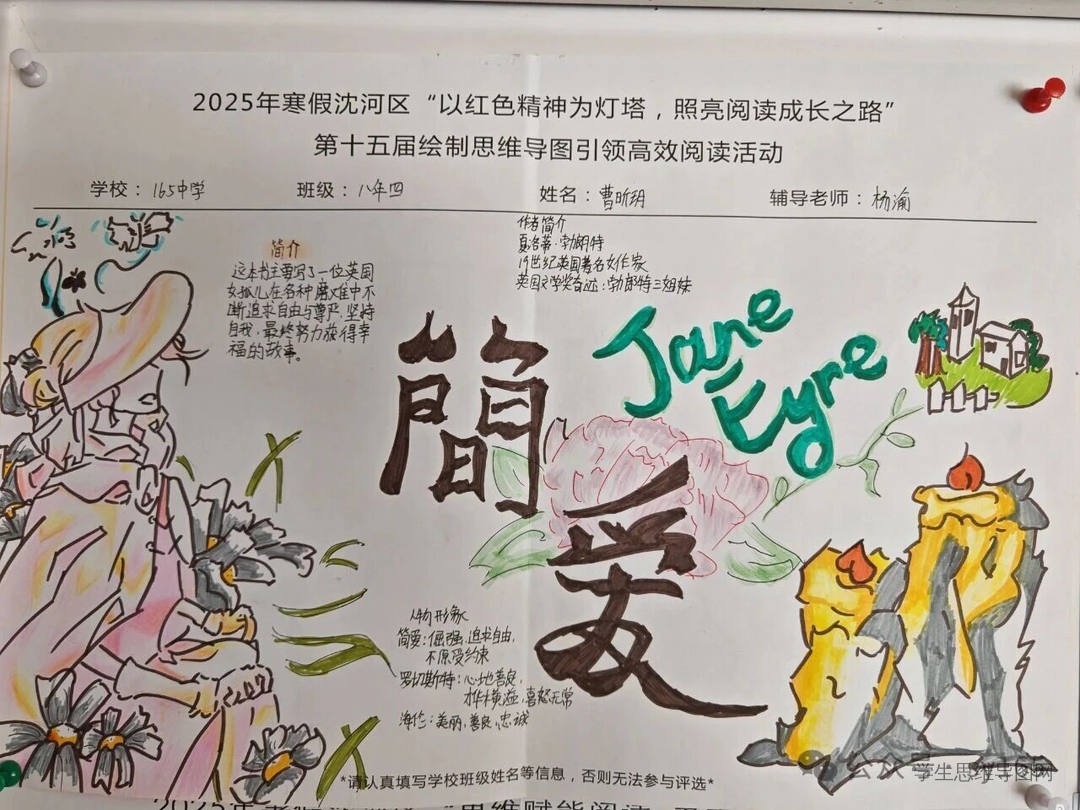 2025年寒假沈河区“以红色精神为灯塔，照亮阅读成长之路”
第十五届绘制思维导图引领高效阅读活动
学校：165中学 班级：八年四 姓名：曹昕玥 辅导老师：杨渝
简介
这本书主要写了一位英国
女孤儿在各种磨难中不
断追求自由与尊严，坚持
自我，最终努力获得幸
福的故事。
作者简介
夏洛蒂·勃朗特
19世纪英国著名女作家
英国文学奖奇迹：勃郎特三姐妹
簡
愛
Jane
Eyre
人物形象
简爱：倔强，追求自由，
不愿受约束
罗切斯特：心地善良，
桦横溢，喜怒无常
海伦：美丽，善良，忠诚
*请认真填写学校班级姓名等信息，否则无法参与评选*
学生思维导图网